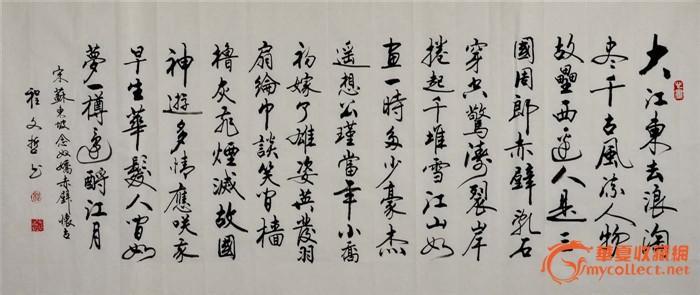 大江東去浪淘
盡千古風流人物
故壘西邊人是三
國周郎赤壁乱石
穿空驚濤裂岸
捲起千堆雪江山如
畫一時多少豪杰
遥想公瑾當年小喬
初嫁了雄姿英發羽
扇綸巾談笑間檣
櫓灰飛煙滅故國
神遊多情應咲我
早生華髮人間如
夢一樽還酹江月
宋蘇東坡念奴嬌赤壁懷古
程文哲书
華夏收藏網
mycollect.net